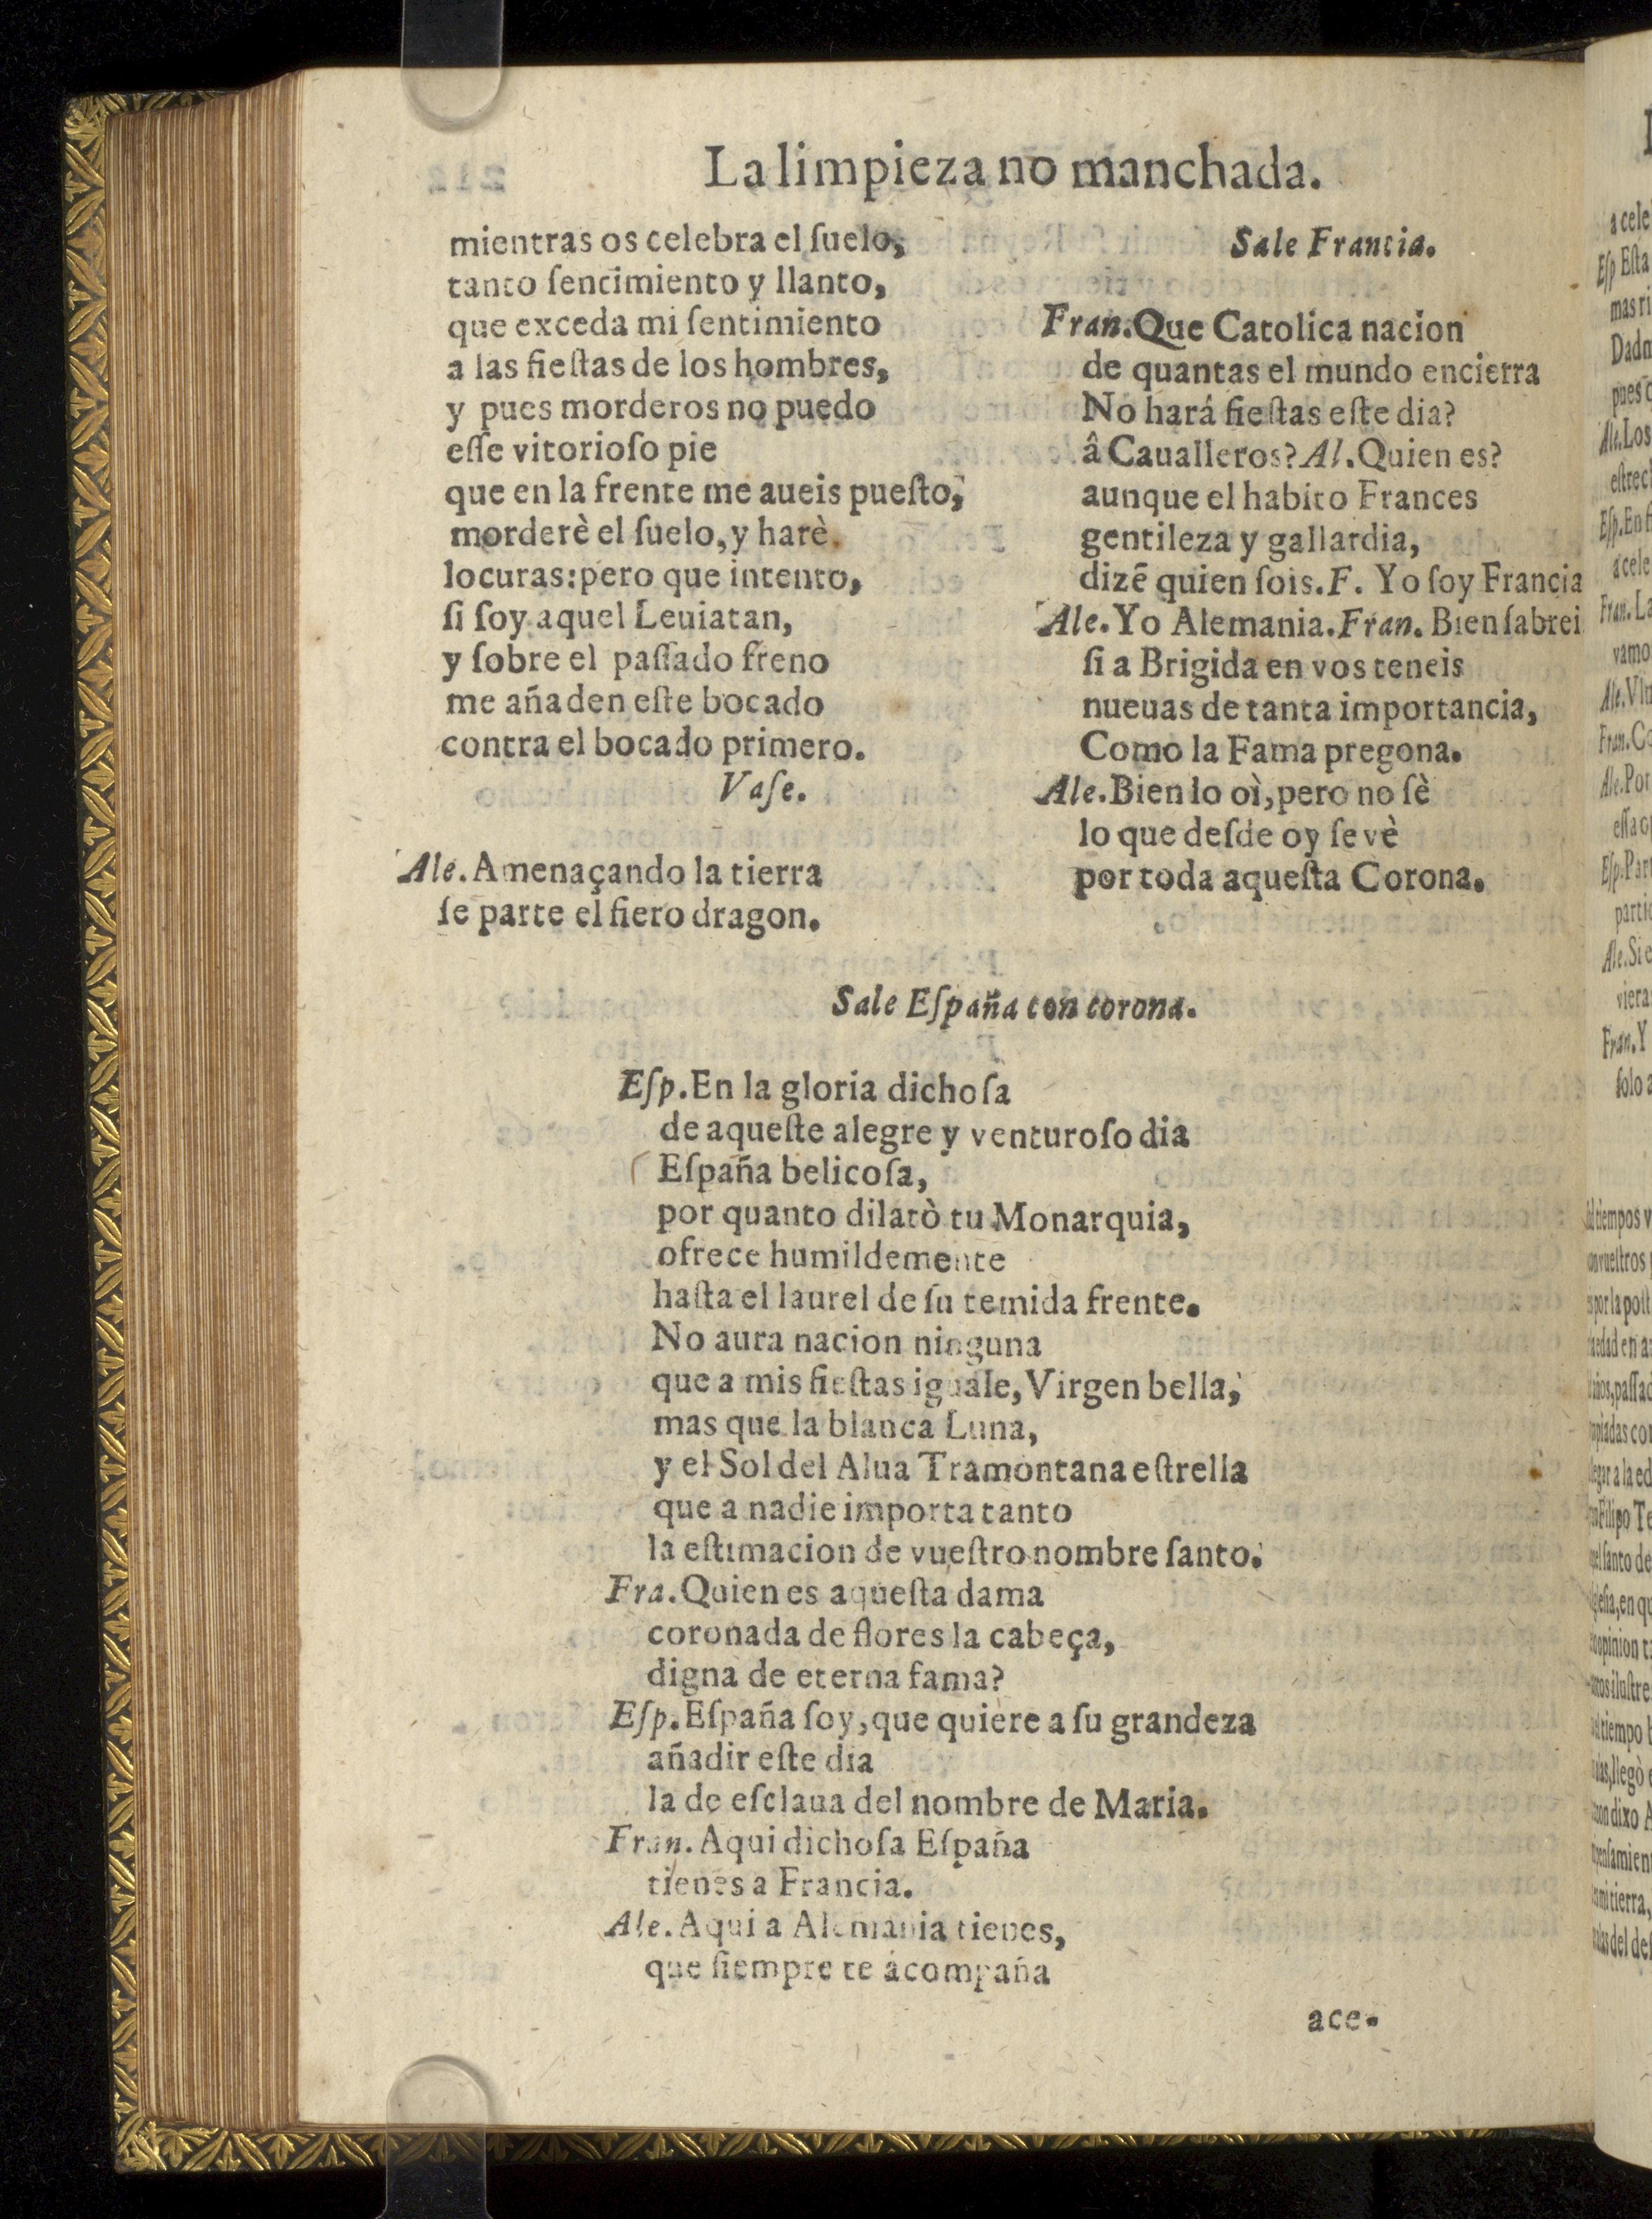 La limpieza no manchada.
mientras os celebra el ſuelo,
tanto ſentimiento y llanto,
que exceda mi ſentimiento
a las fieſtas de los hombres,
y pues morderos no puedo
eſſe vitorioſo pie
que en la frente me aueis pueſto,
morderè el ſuelo, y harè
locuras: pero que intento,
ſi ſoy aquel Leuiatan,
y ſobre el paſſado freno
me añaden eſte bocado
contra el bocado primero.
Vaſe.
Ale. Amenaçando la tierra
ſe parte el fiero dragon.
Sale Francia.
Fran. Que Catolica nacion
de quantas el mundo encierra
No hará fieſtas eſte dia?
â Caualleros? Al. Quien es?
aunque el habito Frances
gentileza y gallardia,
dizē quien ſois. F. Yo ſoy Francia
Ale. Yo Alemania. Fran. Bien ſabrei
ſi a Brigida en vos teneis
nueuas de tanta importancia,
Como la Fama pregona.
Ale. Bien lo oì, pero no ſè
lo que deſde oy ſe vè
por toda aqueſta Corona.
Sale Eſpaña con corona.
Eſp. En la gloria dichoſa
de aqueſte alegre y venturoſo dia
Eſpaña belicoſa,
por quanto dilatò tu Monarquia,
ofrece humildemente
haſta el laurel de ſu temida frente.
No aura nacion ninguna
que a mis fieſtas iguale, Virgen bella,
mas que la blanca Luna,
y el Sol del Alua Tramontana eſtrella
que a nadie importa tanto
la eſtimacion de vueſtro nombre ſanto.
Fra. Quien es aqueſta dama
coronada de flores la cabeça,
digna de eterna fama?
Eſp. Eſpaña ſoy, que quiere a ſu grandeza
añadir eſte dia
la de eſclaua del nombre de Maria.
Fran. Aqui dichoſa Eſpaña
tienes a Francia.
Ale. Aqui a Alemania tienes,
que ſiempre te acompaña
ace-